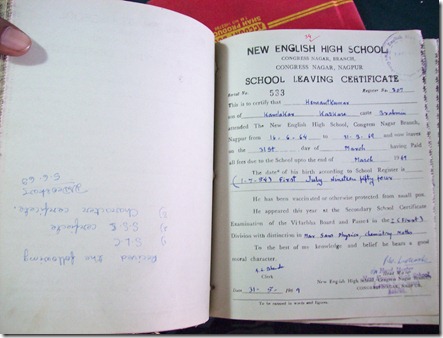 Received the following
1) S L C
2) S.S.C certificate
3) Character certificate.
NEW ENGLISH HIGH SCHOOL
CONGRESS NAGAR, BRANCH,
CONGRESS NAGAR, NAGPUR
SCHOOL LEAVING CERTIFICATE
Serial No. 533 Register No. 307
This is to certify that Hemantkumar
son of Kamlakar
attended The New English High School, Congress Nagar Branch,
Nagpur from 16-6-64 to 31-3-69 and now leaves
on the 31st day of March having Paid
all fees due to the School upto the end of March 1969
The date of his birth according to School Register is
(1-7-54) First July nineteen fifty four
He has been vaccinated or otherwise protected from small pox.
He appeared this year at the Secondary School Certificate
Examination of the Vidarbha Board and Passed in the (First)
Division with distinction in Physics, chemistry, Maths
To the best of my knowledge and belief he bears a good
moral character.
Clerk
New English High School, Congress Nagar Branch
CONGRESS NAGAR, NAGPUR.
Date 31-5-1969
To be entered in words and figures.